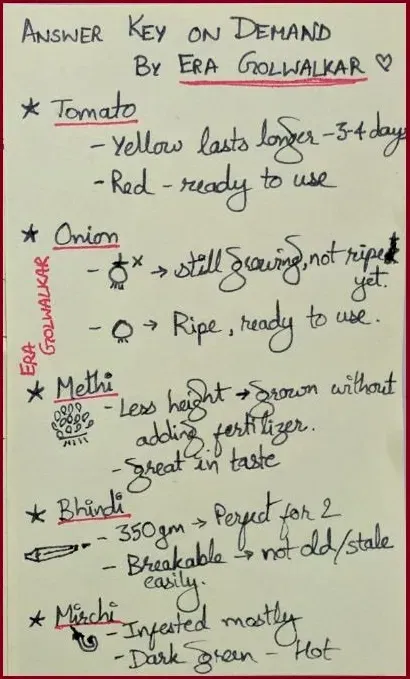 ANSWER KEY ON DEMAND
BY ERA GOLWALKAR ♡
★ Tomato
- Yellow lasts longer - 3-4 days
- Red - ready to use
★ Onion
- x → still growing, not ripe
yet.
- → Ripe, ready to use.
ERA
GOLWALKAR
★ Methi
- Less height → grown without
adding fertilizer.
- Great in taste
★ Bhindi
- 350gm → Perfect for 2
- Breakable → not old/stale
easily.
★ Mirchi
- Infested mostly
- Dark Green - Hot